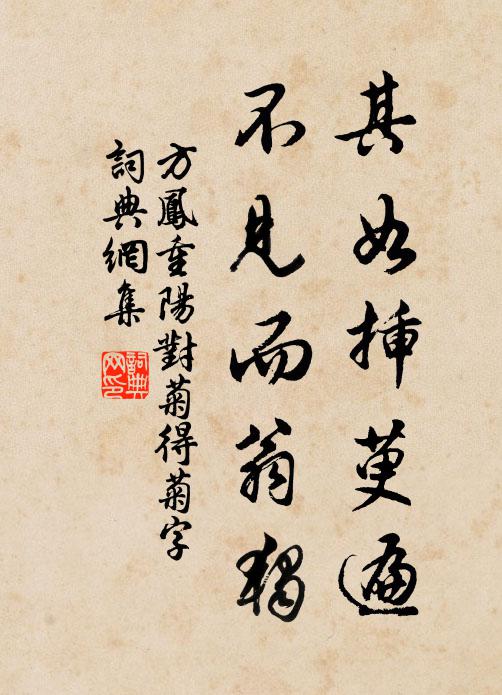 其如插萸遍
不見而翁獨
方鳳重陽對菊得菊字
詞典網集
詞典
网印